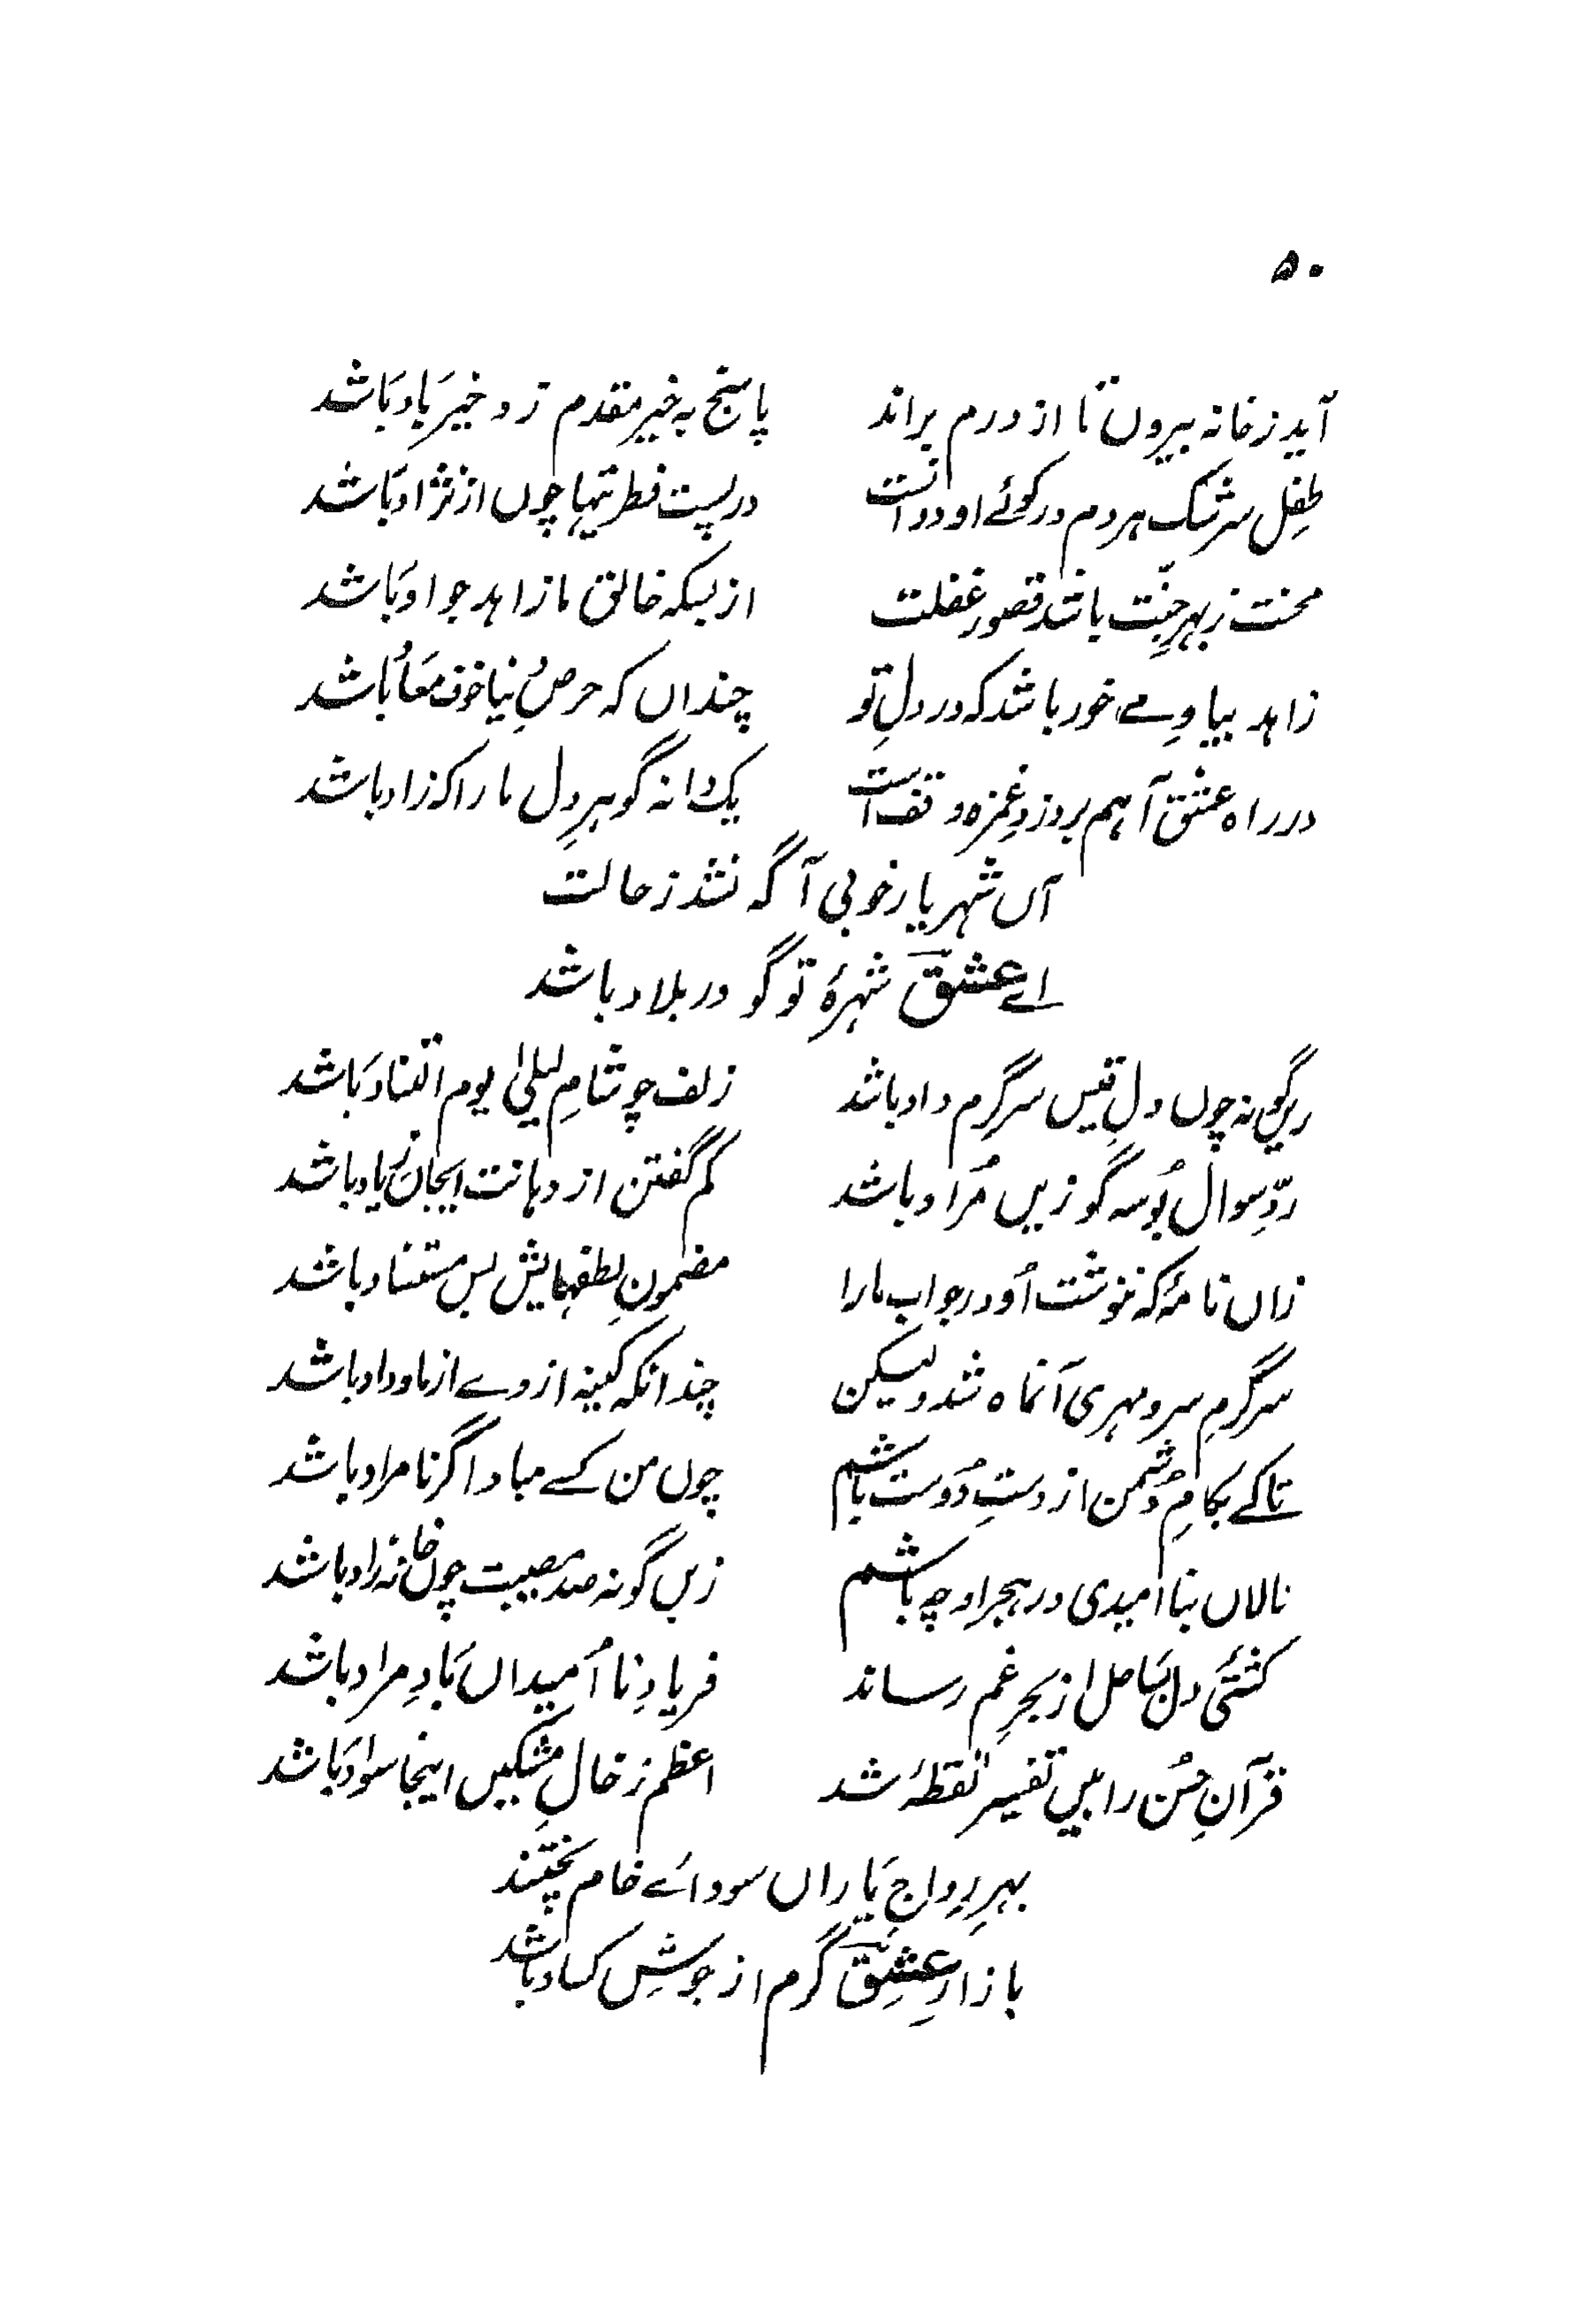 ۵۰
آید ز خانہ بیروں تا از درم براند
پاسخ بہ خیر مقدم زو خیر باد باشد
طفلِ سرشک ہر دم در کوئے او دوانست
در پست فطرتیہا چوں از نژاد باشد
محنت ز بہرِ جنّت باشد قصور غفلت
از بسکہ خالقِ ما زاہد جواد باشد
زاہد بیا و مے خور باشد کہ در دلِ تو
چنداں کہ حرصِ دنیا خوفِ معاد باشد
در راہ عشق آہم بر دزدِ غمزہ وقف است
یک دانہ گوہرِ دل ما را کہ زاد باشد
آں شہر یارِ خوبی آگہ نشد ز حالت
اے عشقؔ شہرۂ تو گو در بلاد باشد
زیں گونہ چوں دلِ قیس سرگرم داد باشد
زلف چو شامِ لیلیٰ یوم التناد باشد
ردِّ سوال بُوسہ گو زیں مُراد باشد
کم گفتن از دہانت ایجان زیاد باشد
زاں نامۂ کہ ننوشت اُو در جواب مارا
مضمونِ لطفہایش بس مستفاد باشد
سرگرمِ سرد مہری آنماہ شد ولیکن
چندانکہ کینہ از وے از ما وداد باشد
تا کے بکامِ دُشمن از دستِ دُوست باشم
چوں من کسے مباد اگر نامراد باشد
نالاں بنا امیدی در ہجر او چہ باشم
زیں گونہ صد مصیبت چوں خانہ زاد باشد
کشتیٔ دل بساحل از بحرِ غم رساند
فریادِ نا اُمیداں بادِ مراد باشد
قرآنِ حُسن را بیں تفسیر نقطۂ شد
اعظم ز خالِ مشکیں اینجا سواد باشد
بہرِ رواجِ یاراں سودائے خام پختند
بازارِ عشقؔ گرم از جوشِ کساد باشد